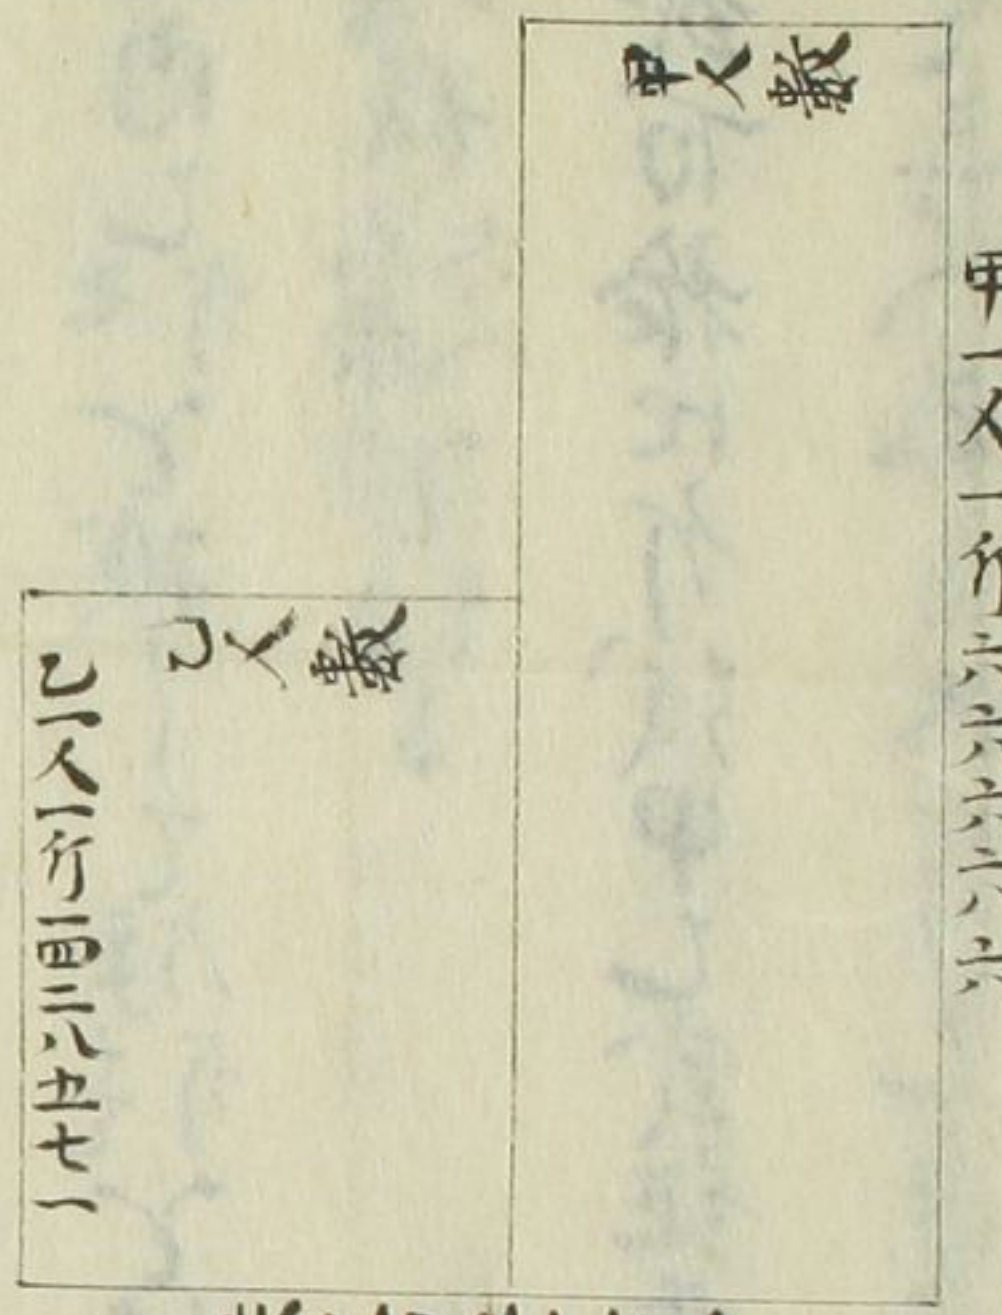 甲一人一行六六六六六
甲人數
乙人數
乙一人一行一四二八五七一